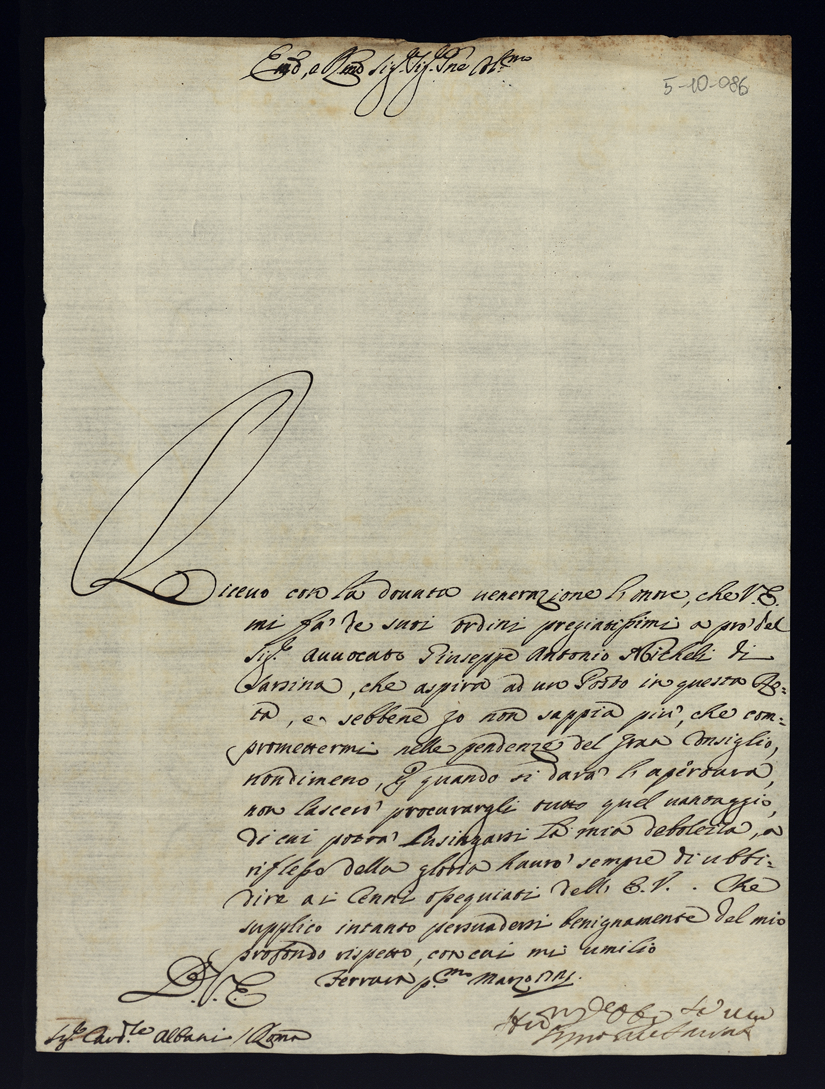 Em̃o, e R̃mo Sig.r Sig.r Pne Col.mo
5-10-086
Ricevo con la dovuta venerazione l'onore, che V.E.
mi fà de suoi ordini pregiatissimi a prò del
Sig.r Avvocato Giuseppe Antonio Micheli di
Sarsina, che aspira ad un Posto in questa Ro=
ta, e sebbene jo non sappia più, che com=
promettermi nelle pendenze del Gran Consiglio,
nondimeno, e quando si darà l'apertura,
non lascerò procurargli tutto quel vantaggio,
di cui potrà lusingarsi la mia debolezza, a
riflesso della gloria havrò sempre di ubbi=
dire a i Cenni ossequiati dell' E.V. . Che
supplico intanto persuadersi benignamente del mio
profondo rispetto, con cui mi umilio
D. V. E. Ferrara p.mo Marzo
Sig.r Card.le Albani / Roma